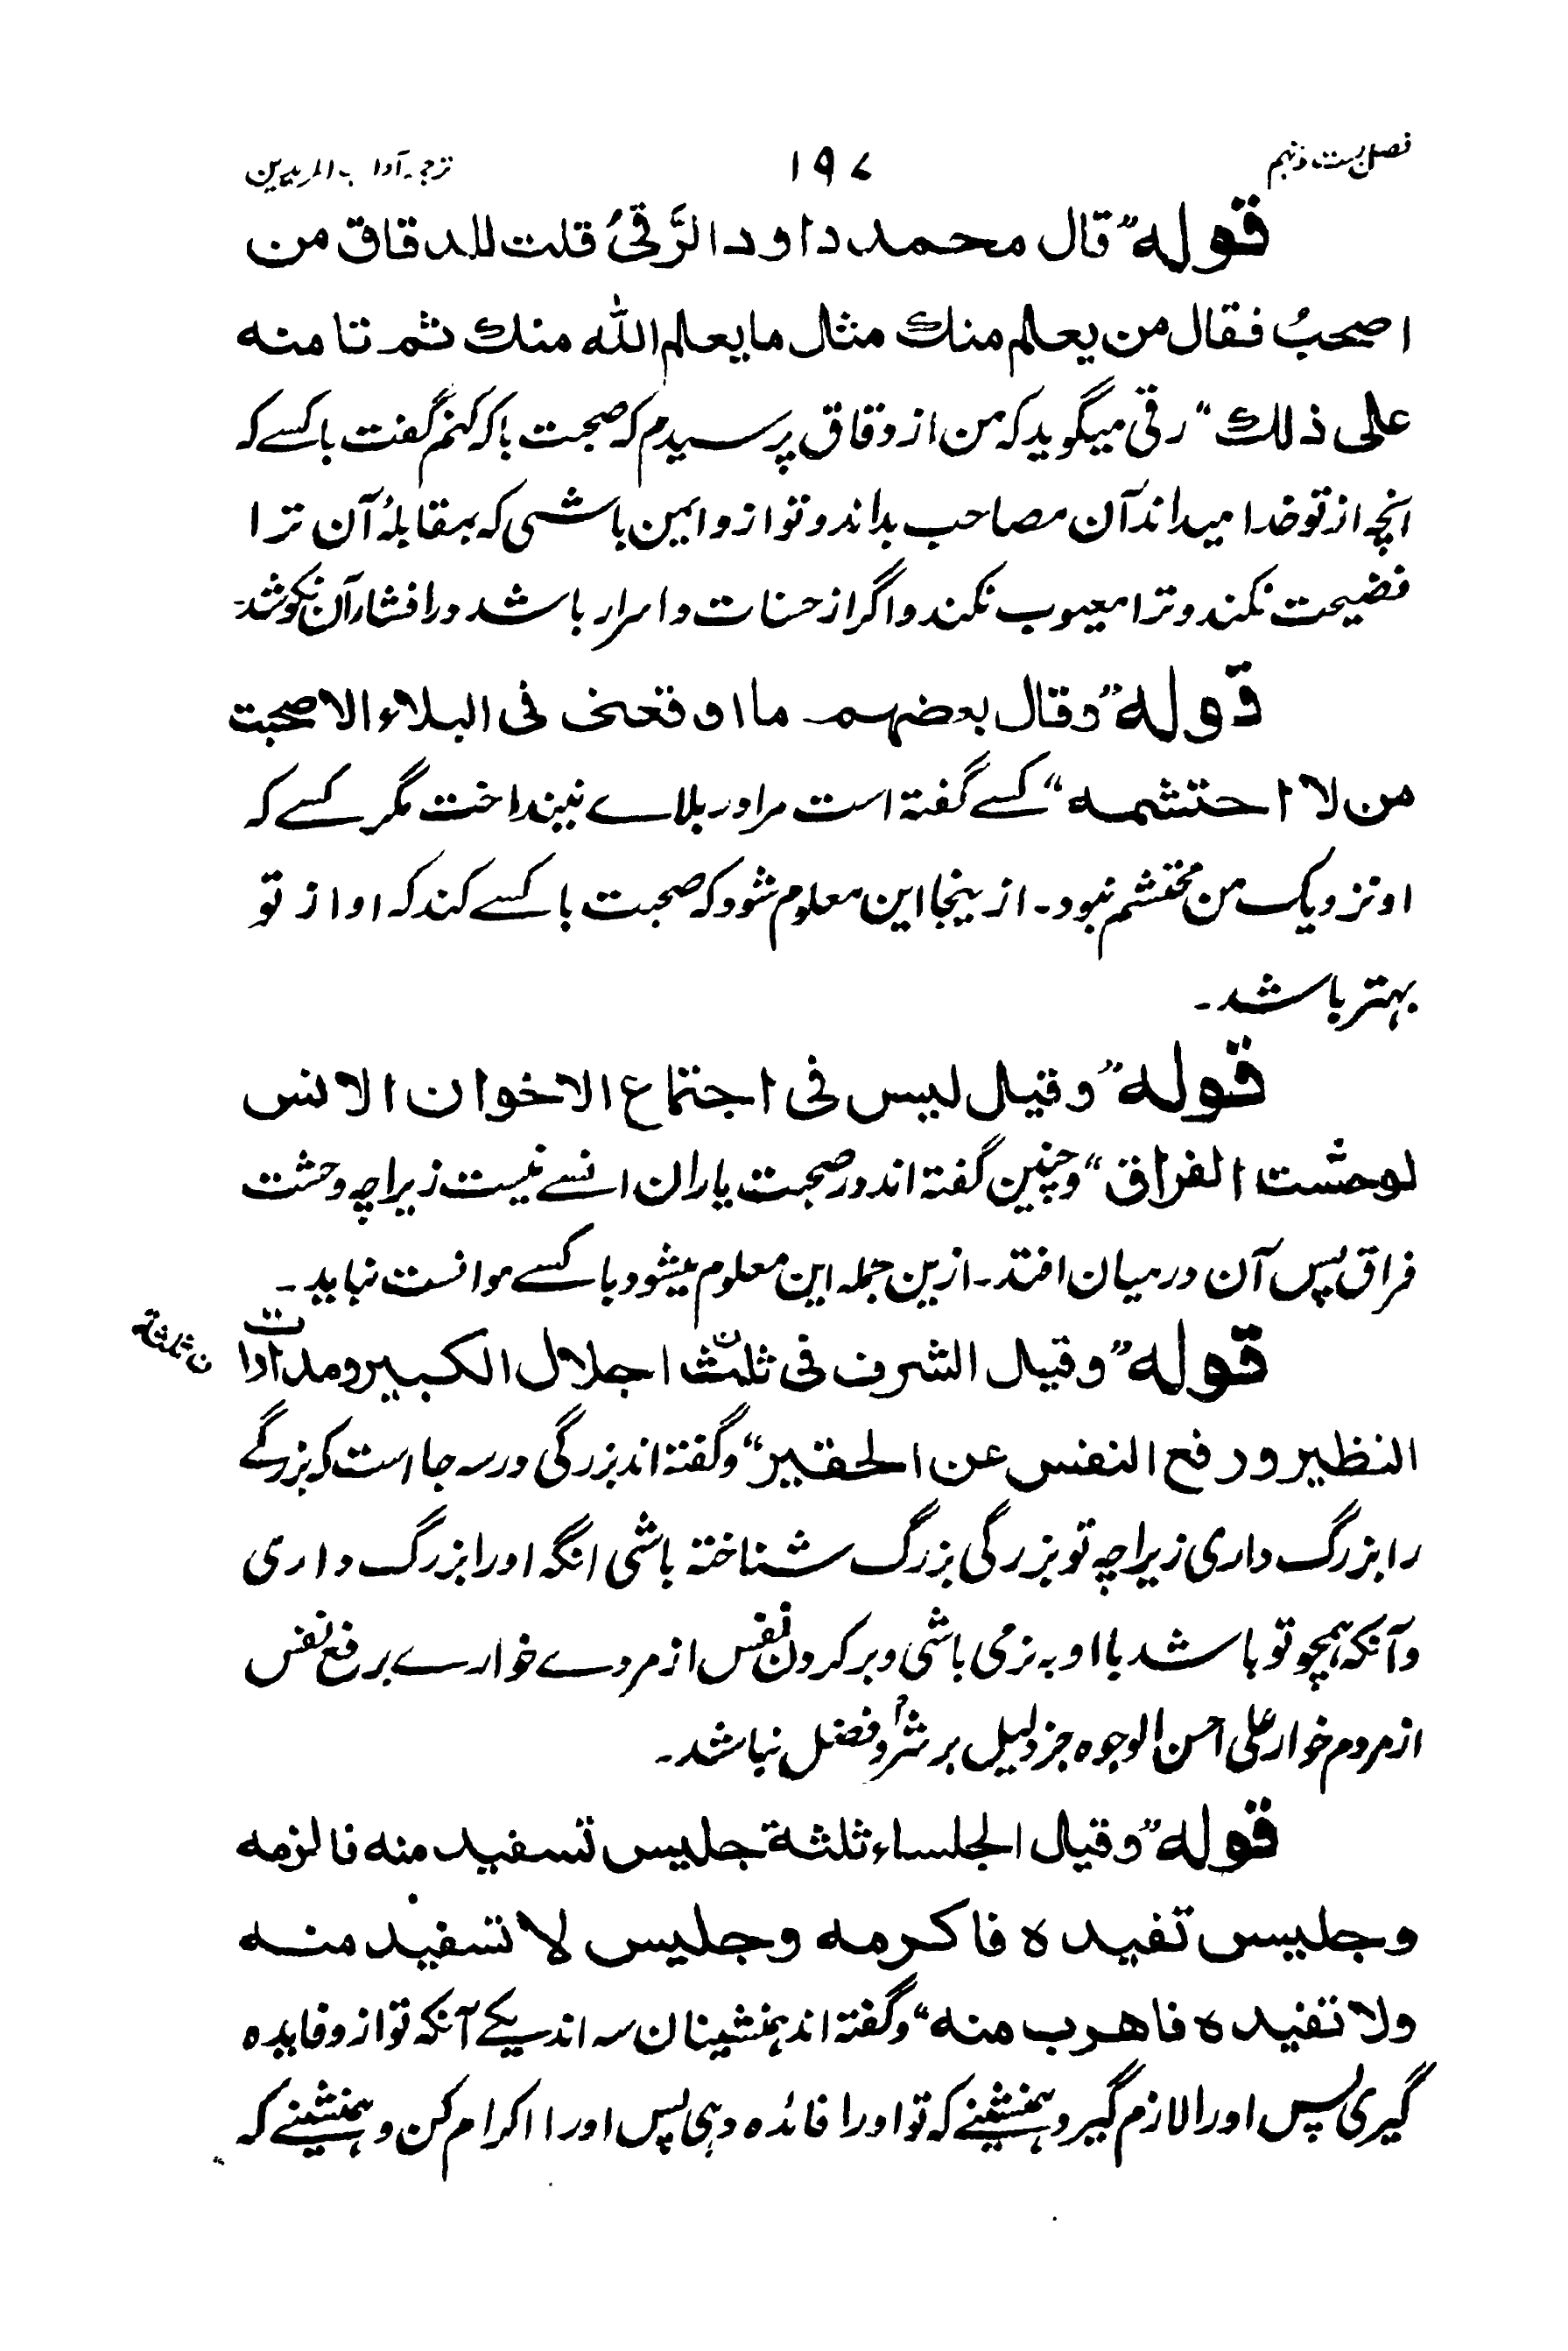 فصل بست و نہم ۱۹۷ ترجمہ آداب المریدین
قولہ ”قال محمد داود الرَّقیُ قلت للدقاق من
اصحبُ فقال من یعلم منك مثل ما یعلم الله منك ثم تامنه
علی ذلك“ رقی میگوید کہ من از دقاق پرسیدم کہ صحبت با کہ کنم گفت با کسے کہ
آنچہ از تو خدا میداند آن مصاحب بداند و تو از و ایمن باشی کہ بمقابلۂ آن ترا
فضیحت نکند و ترا معیوب نکند و اگر از حسنات و اسرار باشد در افشار آن نکوشد۔
قولہ ”وقال بعضہم ما اوقعنی فی البلاء الا صحبت
من لا احتشمه“ کسے گفتہ است مرا در بلاے نینداخت مگر کسے کہ
او نزدیک من محتشم نبود۔ از ینجا این معلوم شود کہ صحبت با کسے کند کہ او از تو
بہتر باشد۔
قولہ ”وقیل لیس فی اجتماع الاخوان الانس
لوحشت الفراق“ و چنین گفتہ اند در صحبت یاران انسے نیست زیراچہ وحشت
فراق پس آن درمیان افتد۔ ازین جملہ این معلوم میشود با کسے موانست نباید۔
قولہ ”وقیل الشرف فی ثلٰث اجلال الکبیر و مدادات
ن ثلثة
النظیر و رفع النفس عن الحقیر“ و گفتہ اند بزرگی در سہ جا است کہ بزرگے
را بزرگ داری زیراچہ تو بزرگی بزرگ شناختہ باشی انگہ او را بزرگ داری
و آنکہ ہمچو تو باشد با او بہ نرمی باشی و بر کردن نفس از مردے خوارے بر رفع نفس
از مردم خوار علی احسن الوجوہ جز دلیل بر شرف و فضل نباشد۔
قولہ ”وقیل الجلساء ثلثة جلیس تسفید منه فالزمه
وجلیس تفیدہ فاکرمه وجلیس لا تسفید منه
ولا تفیدہ فاهرب منه“ و گفتہ اند ہمنشینان سہ اند یکے آنکہ تو از و فایدہ
گیری پس او را لازم گیر و ہمنشینے کہ تو او را فائدہ دہی پس او را اکرام کن و ہمنشینے کہ